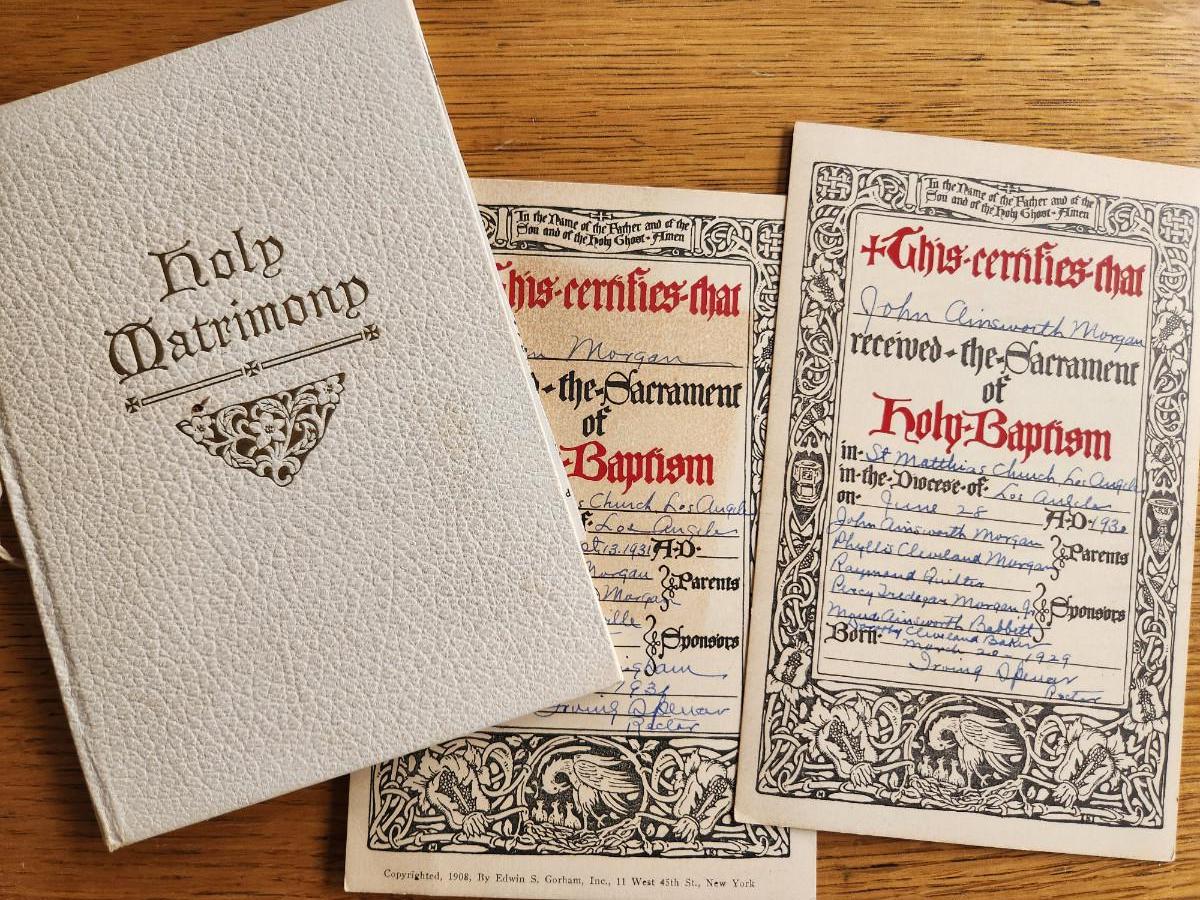 Holy
Matrimony
In the Name of the Father and of the
Son and of the Holy Ghost · Amen
his · certifies · that
Morgan
the · Sacrament
of
Baptism
s Church Los Angeles
f · Los Angeles
13. 1931 A · D ·
Morgan
Morgan
Parents
ville
Sponsors
gham
Irving Spencer
Rector
Copyrighted, 1908, By Edwin S. Gorham, Inc., 11 West 45th St., New York
In the Name of the Father and of the
Son and of the Holy Ghost · Amen
This · certifies · that
John Ainsworth Morgan
received · the · Sacrament
of
Holy · Baptism
in · St Matthias Church Los Angeles
in · the · Diocese · of · Los Angeles
on · June 28 A · D · 1930
John Ainsworth Morgan
Phyllis Cleveland Morgan
Parents
Raymond Quilter
Percy Tredegar Morgan Jr.
Sponsors
Maud Ainsworth Babbett
Dorothy Cleveland Baker
Born · March 20 1929
Irving Spencer
Rector